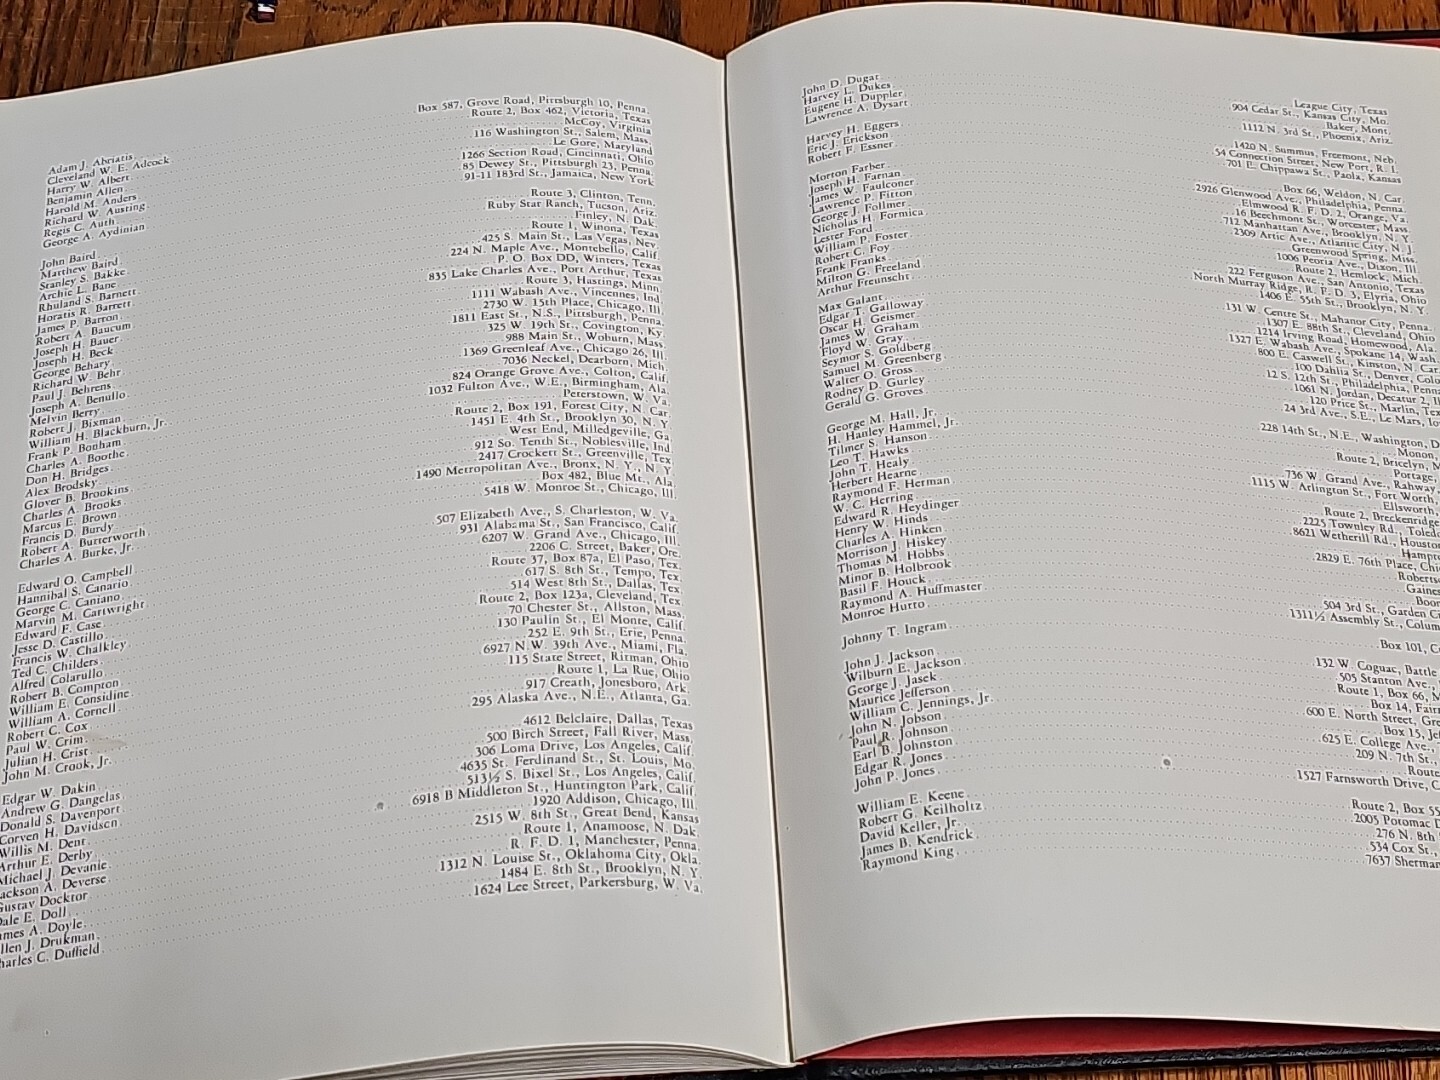 Adam J. Abriatis Box 587, Grove Road, Pittsburgh 10, Penna.
Cleveland W. E. Adcock Route 2, Box 462, Victoria, Texas
Harry W. Albert McCoy, Virginia
Benjamin Allen 116 Washington St., Salem, Mass.
Harold M. Anders Le Gore, Maryland
Richard W. Austing 1266 Section Road, Cincinnati, Ohio
Regis C. Auth 85 Dewey St., Pittsburgh 23, Penna.
George A. Aydinian 91-11 183rd St., Jamaica, New York
John Baird Route 3, Clinton, Tenn.
Matthew Baird Ruby Star Ranch, Tucson, Ariz.
Stanley S. Bakke Finley, N. Dak.
Archie L. Bane Route 1, Winona, Texas
Rhuland S. Barnett 425 S. Main St., Las Vegas, Nev.
Horatis R. Barrett 224 N. Maple Ave., Montebello, Calif.
James P. Barron P. O. Box DD, Winters, Texas
Robert A. Baucum 835 Lake Charles Ave., Port Arthur, Texas
Joseph H. Bauer Route 3, Hastings, Minn.
Joseph H. Beck 1111 Wabash Ave., Vincennes, Ind.
George Behary 2730 W. 15th Place, Chicago, Ill.
Richard W. Behr 1811 East St., N.S., Pittsburgh, Penna.
Paul J. Behrens 325 W. 19th St., Covington, Ky.
Joseph A. Benullo 988 Main St., Woburn, Mass.
Melvin Berry 1369 Greenleaf Ave., Chicago 26, Ill.
Robert J. Bixman 7036 Neckel, Dearborn, Mich.
William H. Blackburn, Jr. 824 Orange Grove Ave., Colton, Calif.
Frank P. Bonham 1032 Fulton Ave., W.E., Birmingham, Ala.
Charles A. Boothe Peterstown, W. Va.
Don H. Bridges Route 2, Box 191, Forest City, N. Car.
Alex Brodsky 1451 E. 4th St., Brooklyn 30, N. Y.
Glover B. Brookins West End, Milledgeville, Ga.
Charles A. Brooks 912 So. Tenth St., Noblesville, Ind.
Marcus E. Brown 2417 Crockett St., Greenville, Tex.
Francis D. Burdy 1490 Metropolitan Ave., Bronx, N. Y., N. Y.
Robert A. Butterworth Box 482, Blue Mt., Ala.
Charles A. Burke, Jr. 5418 W. Monroe St., Chicago, Ill.
Edward O. Campbell 507 Elizabeth Ave., S. Charleston, W. Va.
Hannibal S. Canario 931 Alabama St., San Francisco, Calif.
George C. Caniano 6207 W. Grand Ave., Chicago, Ill.
Marvin M. Cartwright 2206 C. Street, Baker, Ore.
Edward F. Case Route 37, Box 87a, El Paso, Tex.
Jesse D. Castillo 617 S. 8th St., Tempo, Tex.
Francis W. Chalkley 514 West 8th St., Dallas, Tex.
Ted C. Childers Route 2, Box 123a, Cleveland, Tex.
Alfred Colarullo 70 Chester St., Allston, Mass.
Robert B. Compton 130 Paulin St., El Monte, Calif.
William E. Considine 252 E. 9th St., Erie, Penna.
William A. Cornell 6927 N.W. 39th Ave., Miami, Fla.
Robert C. Cox 115 State Street, Ritman, Ohio
Paul W. Crim Route 1, La Rue, Ohio
Julian H. Crist 917 Creath, Jonesboro, Ark.
John M. Crook, Jr. 295 Alaska Ave., N.E., Atlanta, Ga.
Edgar W. Dakin 4612 Belclaire, Dallas, Texas
Andrew G. Dangelas 500 Birch Street, Fall River, Mass.
Donald S. Davenport 306 Loma Drive, Los Angeles, Calif.
Corven H. Davidson 4635 St. Ferdinand St., St. Louis, Mo.
Willis M. Dent 513½ S. Bixel St., Los Angeles, Calif.
Arthur E. Derby 6918 B Middleton St., Huntington Park, Calif.
Michael J. Devanie 1920 Addison, Chicago, Ill.
ackson A. Deverse 2515 W. 8th St., Great Bend, Kansas
Gustav Docktor Route 1, Anamoose, N. Dak.
Dale E. Doll R. F. D. 1, Manchester, Penna.
ames A. Doyle 1312 N. Louise St., Oklahoma City, Okla.
llen J. Drukman 1484 E. 8th St., Brooklyn, N. Y.
harles C. Duffield 1624 Lee Street, Parkersburg, W. Va.
John D. Dugat League City, Texas
Harvey L. Dukes 904 Cedar St., Kansas City, Mo.
Eugene H. Duppler Baker, Mont.
Lawrence A. Dysart 1112 N. 3rd St., Phoenix, Ariz.
Harvey H. Eggers 1420 N. Summus, Freemont, Neb.
Eric J. Erickson 54 Connection Street, New Port, R. I.
Robert F. Essner 701 E. Chippawa St., Paola, Kansas
Morton Farber Box 66, Weldon, N. Car.
Joseph H. Farnan 2926 Glenwood Ave., Philadelphia, Penna.
James W. Faulconer Elmwood R. F. D. 2, Orange, Va.
Lawrence P. Fitton 16 Beechmont St., Worcester, Mass.
George J. Follmer 712 Manhattan Ave., Brooklyn, N. Y.
Nicholas H. Formica 2309 Artic Ave., Atlantic City, N. J.
Lester Ford Greenwood Spring, Miss.
William P. Foster 1006 Peoria Ave., Dixon, Ill.
Robert C. Foy Route 2, Hemlock, Mich.
Frank Franks 222 Ferguson Ave., San Antonio, Texas
Milton G. Freeland North Murray Ridge, R. F. D. 3, Elyria, Ohio
Arthur Freunscht 1406 E. 55th St., Brooklyn, N. Y.
Max Galant 131 W. Centre St., Mahanor City, Penna.
Edgar T. Galloway 1307 E. 88th St., Cleveland, Ohio
Oscar H. Geismer 1214 Irving Road, Homewood, Ala.
James W. Graham 1327 E. Wabash Ave., Spokane 14, Wash.
Floyd W. Gray 800 E. Caswell St., Kinston, N. Car.
Seymor S. Goldberg 100 Dahlia St., Denver, Colo
Samuel M. Greenberg 12 S. 12th St., Philadelphia, Penn
Walter O. Gross 1061 N. Jordan, Decatur 2, Il
Rodney D. Gurley 120 Price St., Marlin, Tex
Gerald G. Groves 24 3rd Ave., S.E., Le Mars, Io
George M. Hall, Jr. 228 14th St., N.E., Washington, D
H. Hanley Hammel, Jr. Monon,
Tilmer S. Hanson Route 2, Bricelyn, M
Leo T. Hawks Portage,
John T. Healy 736 W. Grand Ave., Rahway,
Herbert Hearne 1115 W. Arlington St., Fort Worth,
Raymond F. Herman Ellsworth,
W. C. Herring Route 2, Breckenridge
Edward R. Heydinger 2225 Townley Rd., Toled
Henry W. Hinds 8621 Wetherill Rd., Housto
Charles A. Hinken Hampt
Morrison J. Hiskey 2829 E. 76th Place, Chi
Thomas M. Hobbs Roberts
Minor B. Holbrook Gaines
Basil F. Houck Boon
Raymond A. Huffmaster 504 3rd St., Garden C
Monroe Hutto 1311½ Assembly St., Colum
Johnny T. Ingram Box 101, C
John J. Jackson 132 W. Coguac, Battle
Wilburn E. Jackson 505 Stanton Ave.,
George J. Jasek Route 1, Box 66, M
Maurice Jefferson Box 14, Fair
William C. Jennings, Jr. 600 E. North Street, Gre
John N. Jobson Box 15, Je
Paul R. Johnson 625 E. College Ave.,
Earl B. Johnston 209 N. 7th St.,
Edgar R. Jones Route
John P. Jones 1527 Farnsworth Drive, C
William E. Keene Route 2, Box 55
Robert G. Keilholtz 2005 Potomac D
David Keller, Jr. 276 N. 8th
James B. Kendrick 534 Cox St.,
Raymond King 7637 Sherman